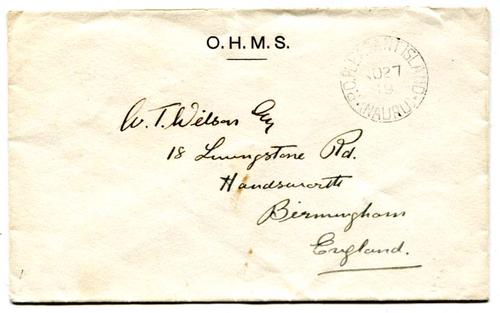 O.H.M.S.
P.O. PLEASANT ISLAND
27
19
(NAURU)
W. T. Wilson Esq
18 Livingstone Rd.
Handsworth
Birmingham
England.